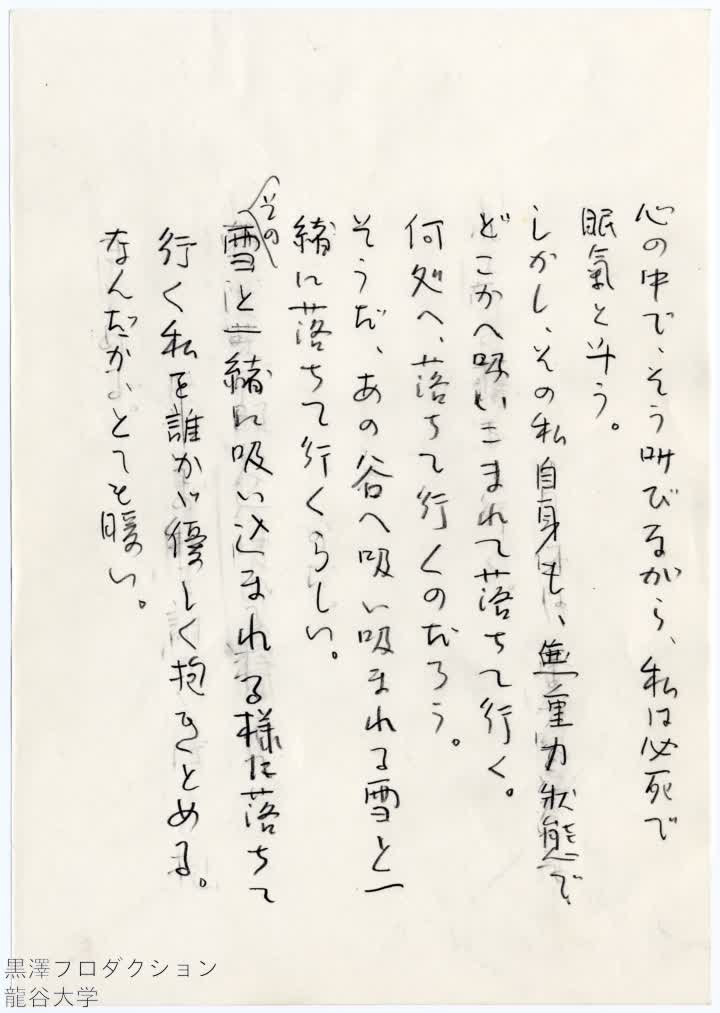 心の中で、そう叫びながら、私は必死で
眠氣と斗う。
しかし、その私自身も、無重力状態で
どこかへ吸いこまれて落ちて行く。
何処へ、落ちて行くのだろう。
そうだ、あの谷へ吸い吸まれる雪と一
緒に落ちて行くらしい。
その
雪と一緒に吸い込まれる様に落ちて
行く私を誰かが優しく抱きとめる。
なんだか、とても暖い。
黒澤プロダクション
龍谷大学